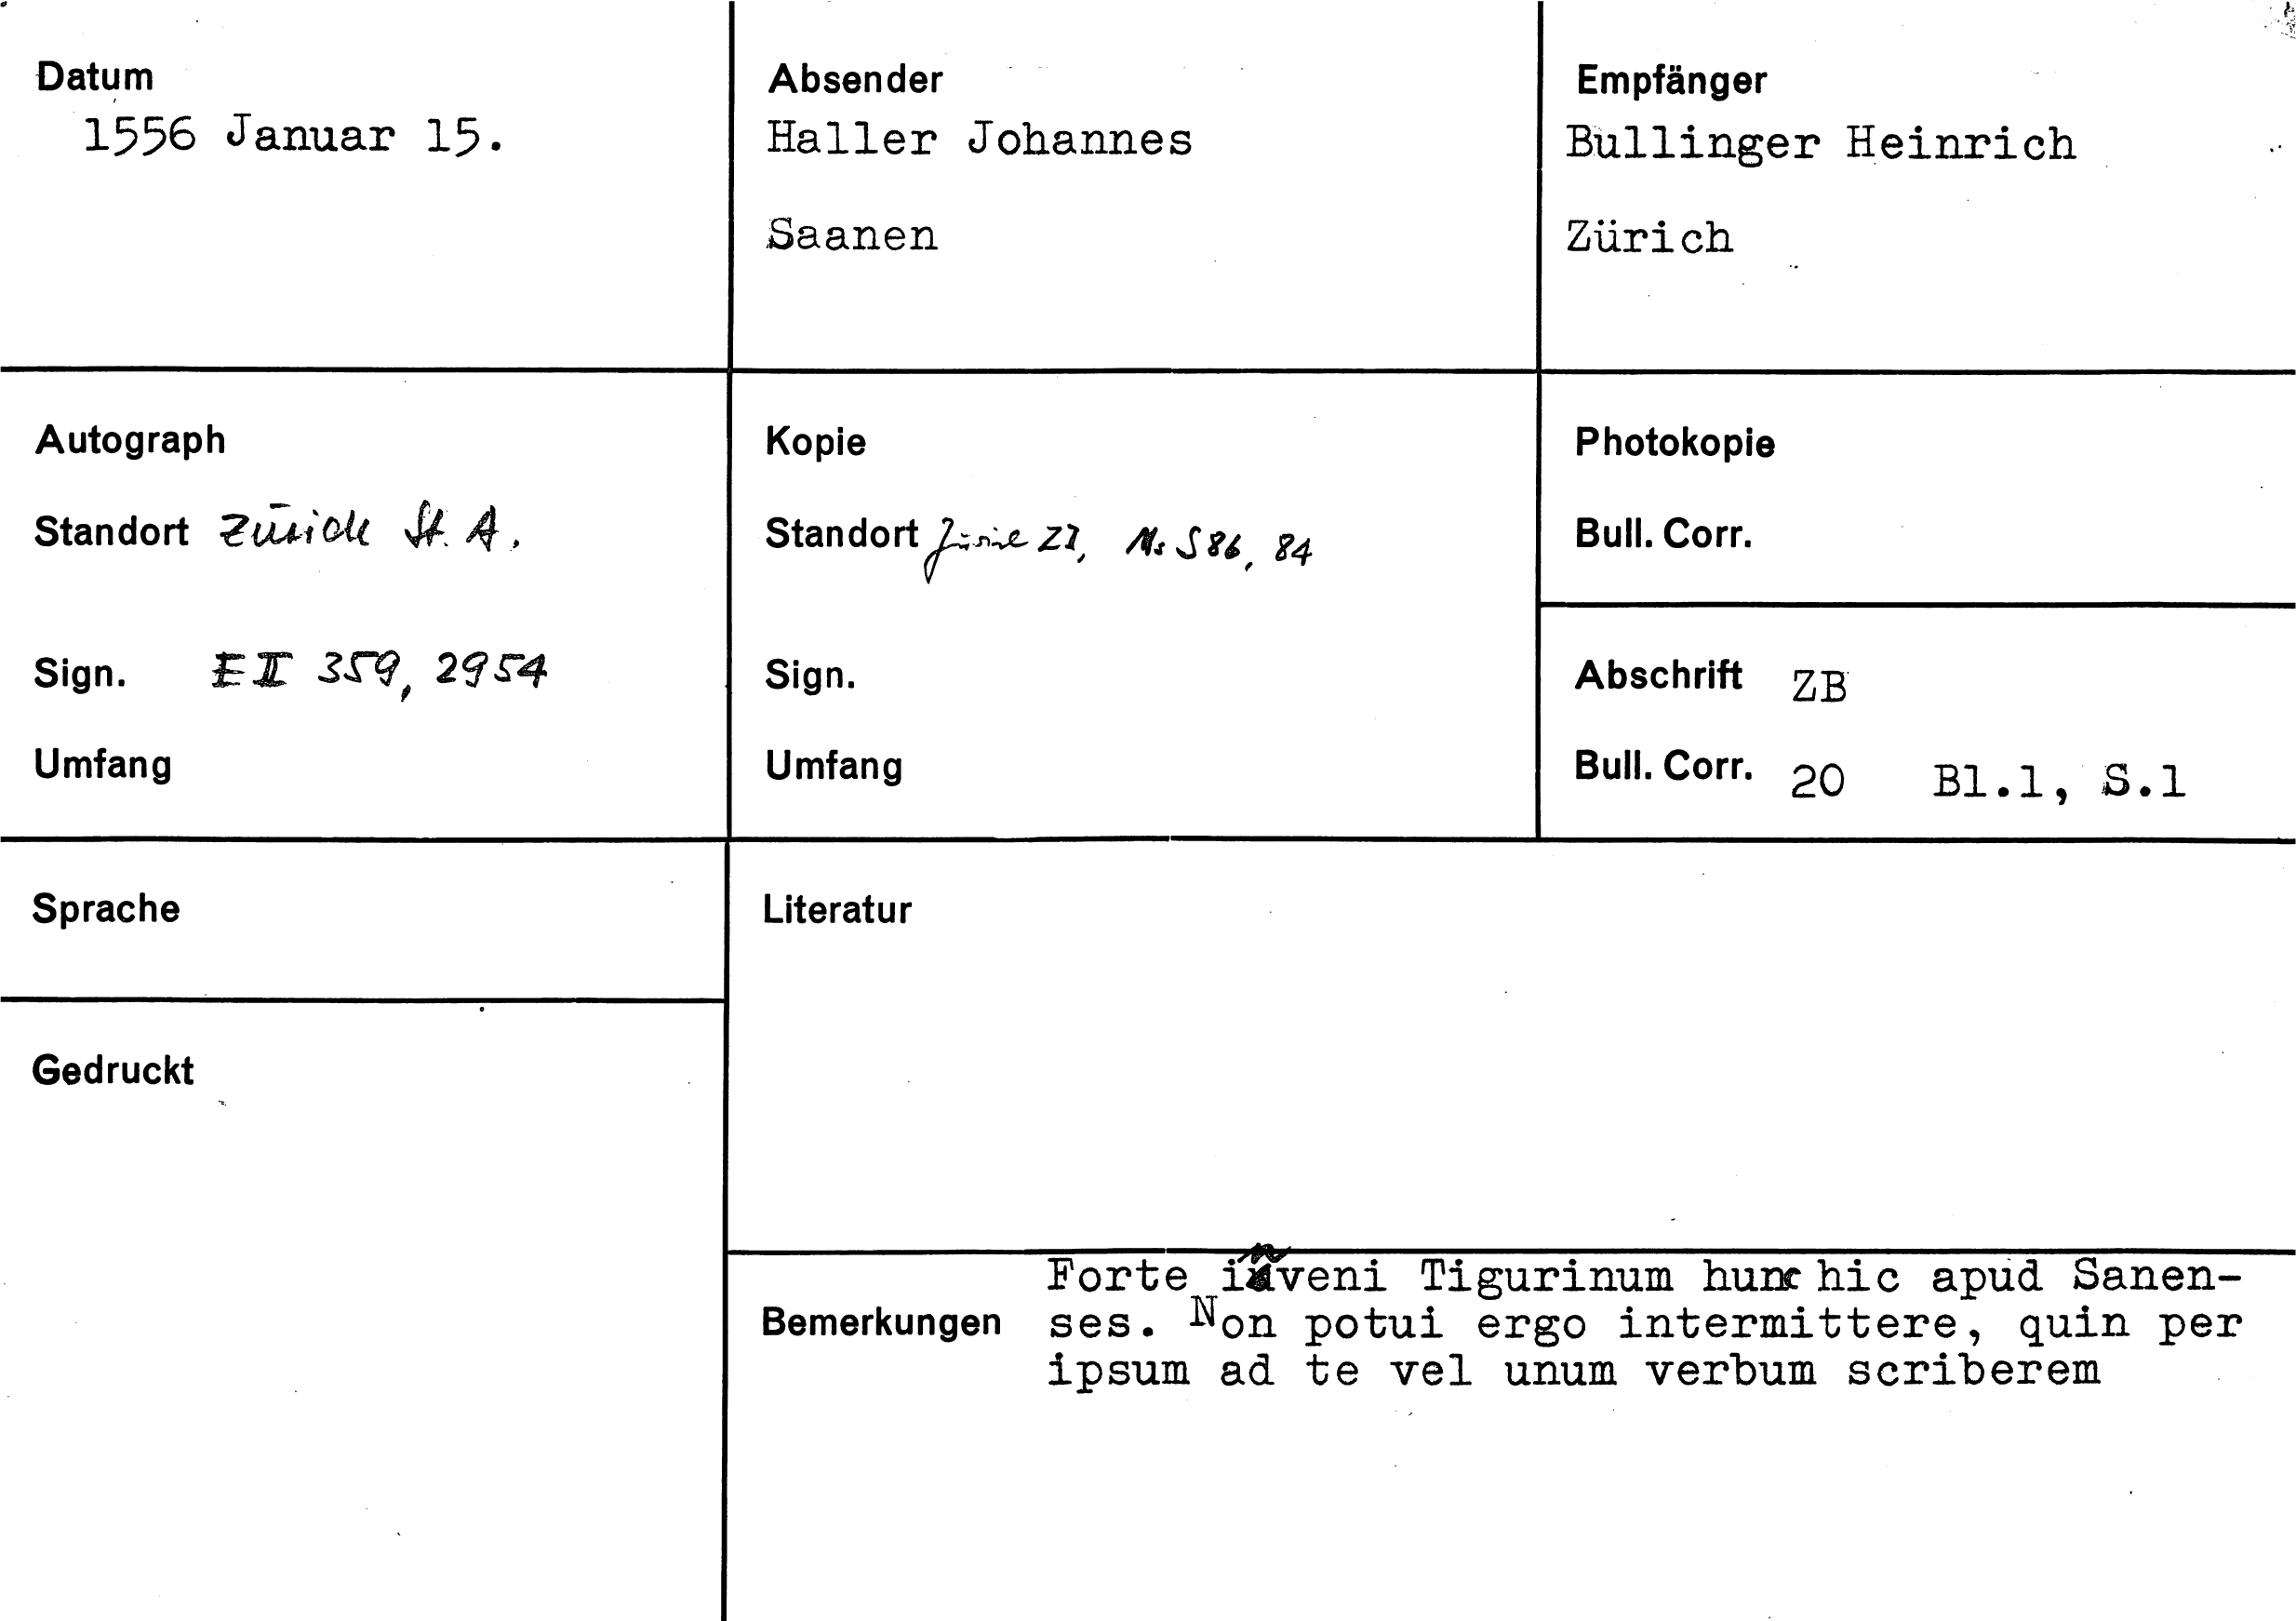 Datum
1556 Januar 15.
Absender
Haller Johannes
Saanen
Empfänger
Bullinger Heinrich
Zürich
Autograph
Standort Zürich St. A.
Sign. E II 359, 2954
Umfang
Kopie
Standort Zürich ZB, Ms S 86, 84
Sign.
Umfang
Photokopie
Bull. Corr.
Abschrift ZB
Bull. Corr. 20 Bl.1, S.1
Sprache
Gedruckt
Literatur
Bemerkungen
Forte inveni Tigurinum hunc hic apud Sanen-
ses. Non potui ergo intermittere, quin per
ipsum ad te vel unum verbum scriberem